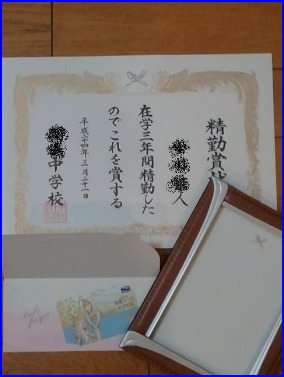 精勤賞状
人
在学三年間精勤した
のでこれを賞する
平成二十四年三月二十一日
中学校